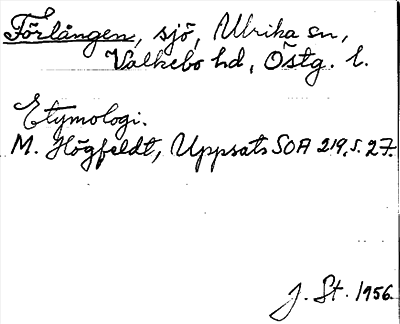 Förlången, sjö, Ulrika sn,
Valkebo hd, Östg. l.
Etymologi.
M. Högfeldt, Uppsats SOA 219, s. 27.
J. St. 1956.